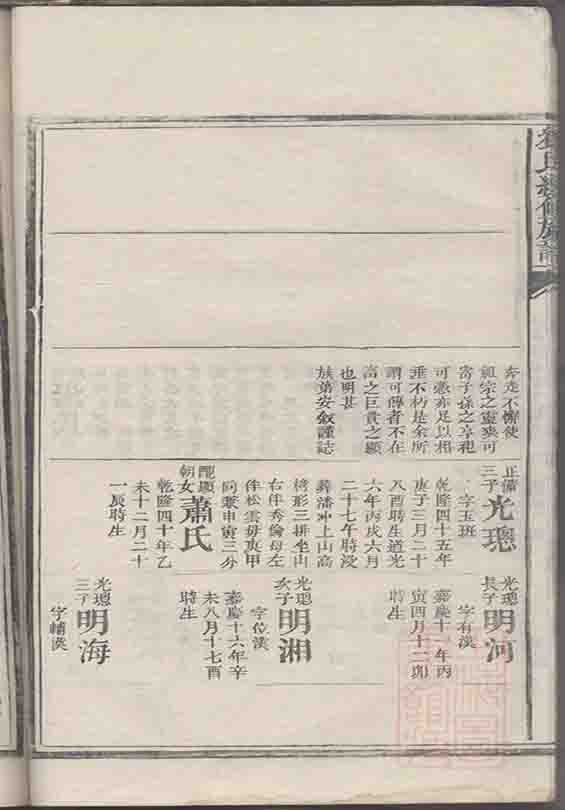 氏續修族譜
奔走不懈使
祖宗之靈爽可
寄子孫之享祀
可憑亦足以相
垂不朽是余所
謂可傳者不在
高之巨貴之顯
也明甚
族弟安敘謹誌
正備三子光璁
字玉班
乾隆四十五年
庚子三月二十
八酉時生道光
六年丙戌六月
二十七午時沒
葬潘沖上山高
椅形三排坐山
右伴秀倫母左
伴松雲母庚甲
向兼申寅三分
朝女蕭氏
乾隆四十年乙
未十二月二十
一辰時生
光璁長子明河
字有漢
嘉慶十一年丙
寅四月十二卯
時生
光璁次子明湘
字位漢
嘉慶十六年辛
未八月十七酉
時生
光璁三子明海
字輔漢